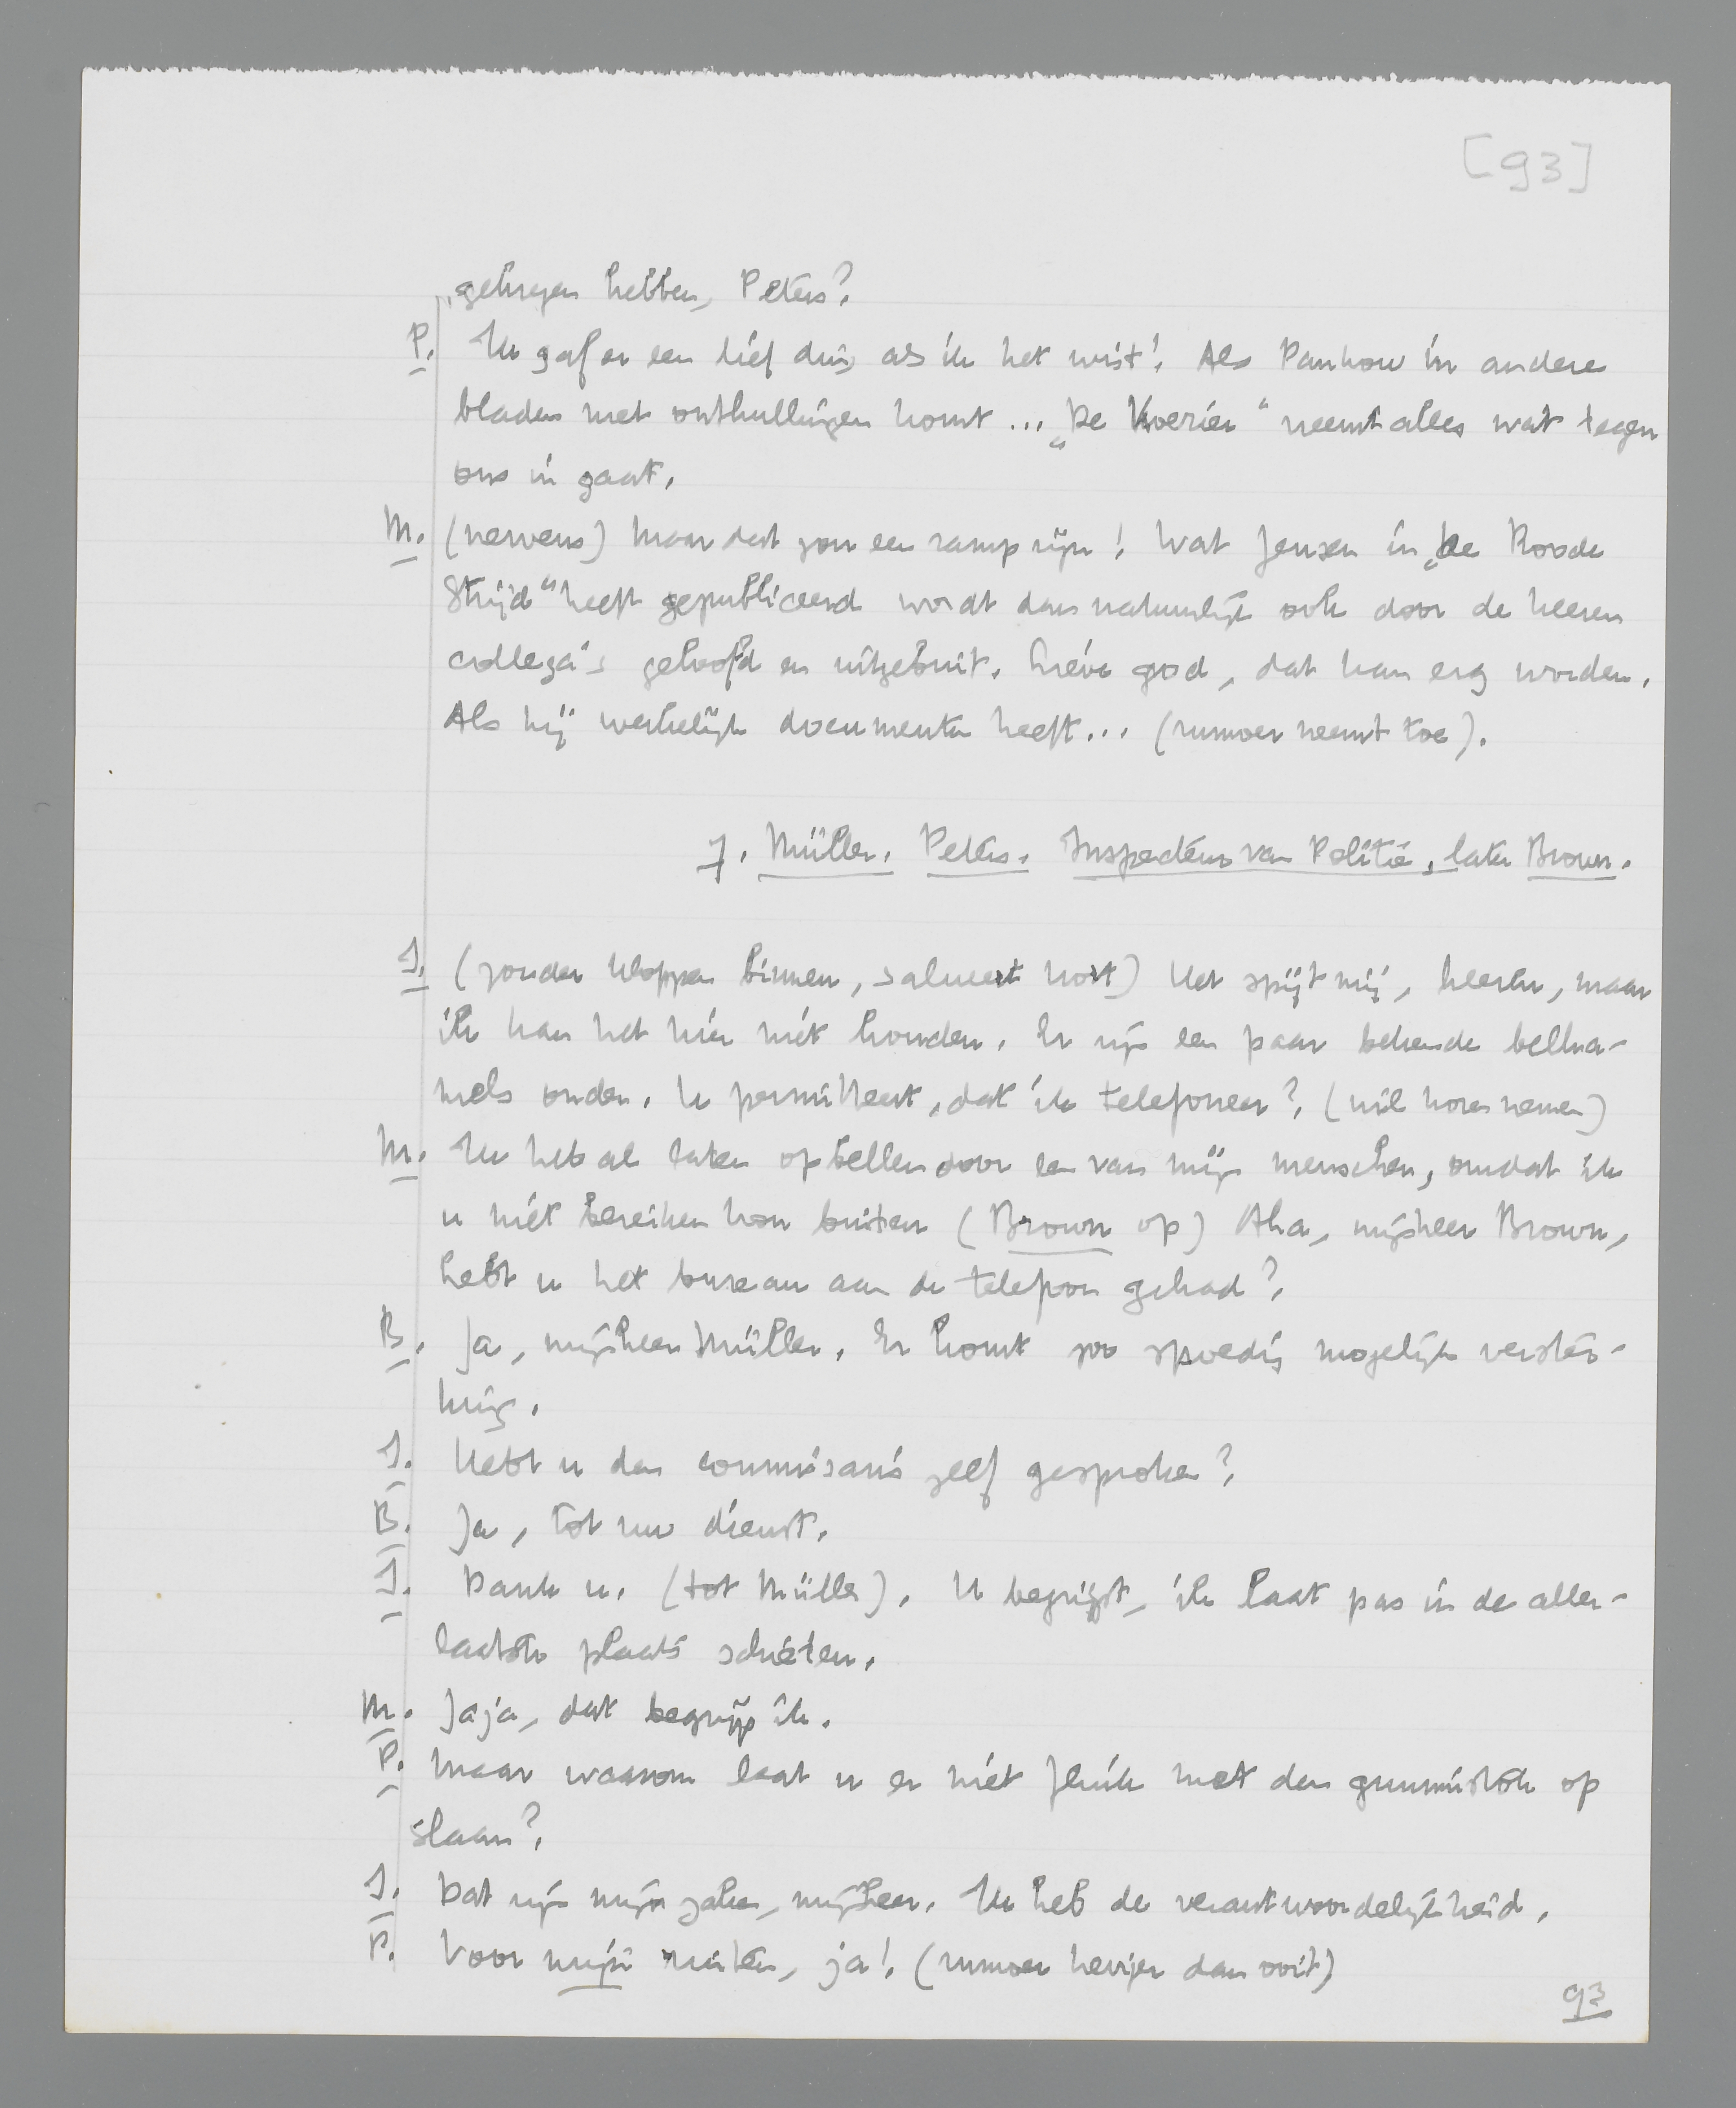 [93]
gekregen hebben, Peters?
P. Ik gaf er een lief ding als ik het wist! Als Pankow in andere
bladen met onthullingen komt ... „De Koerier" neemt alles wat tegen
ons in gaat.
M. (nerveus) Maar dat zou een ramp zijn! Wat Jensen in „De Roode
Strijd" heeft gepubliceerd wordt dan natuurlijk ook door de heeren
collega's geloofd en uitgebuit. Lieve god, dat kan erg worden.
Als hij werkelijk documenten heeft... (rumoer neemt toe).
7. Müller. Peters. Inspecteur van Politie, later Brown.
I. (zonder kloppen binnen, salueert kort) Het spijt mij, heeren, maar
ik kan het hier niet houden. Er zijn een paar bekende belha-
mels onder. U permitteert, dat ik telefoneer? (wil horen nemen)
M. Ik heb al laten opbellen door een van mijn menschen, omdat ik
u niet bereiken kon buiten (Brown op) Aha, mijnheer Brown,
hebt u het bureau aan de telefoon gehad?
B. Ja, mijnheer Müller. Er komt zoo spoedig mogelijk verster-
king.
I. Hebt u den commissaris zelf gesproken?
B. Ja, tot uw dienst.
I. Dank u. (tot Müller). U begrijpt, ik laat pas in de aller-
laatste plaats schieten.
M. Jaja, dat begrijp ik.
P. Maar waarom laat u er niet flink met den gummistok op
slaan?
I. Dat zijn mijn zaken, mijnheer. Ik heb de verantwoordelijkheid.
P. Voor mijn ruiten, ja! (rumoer heviger dan ooit)
93